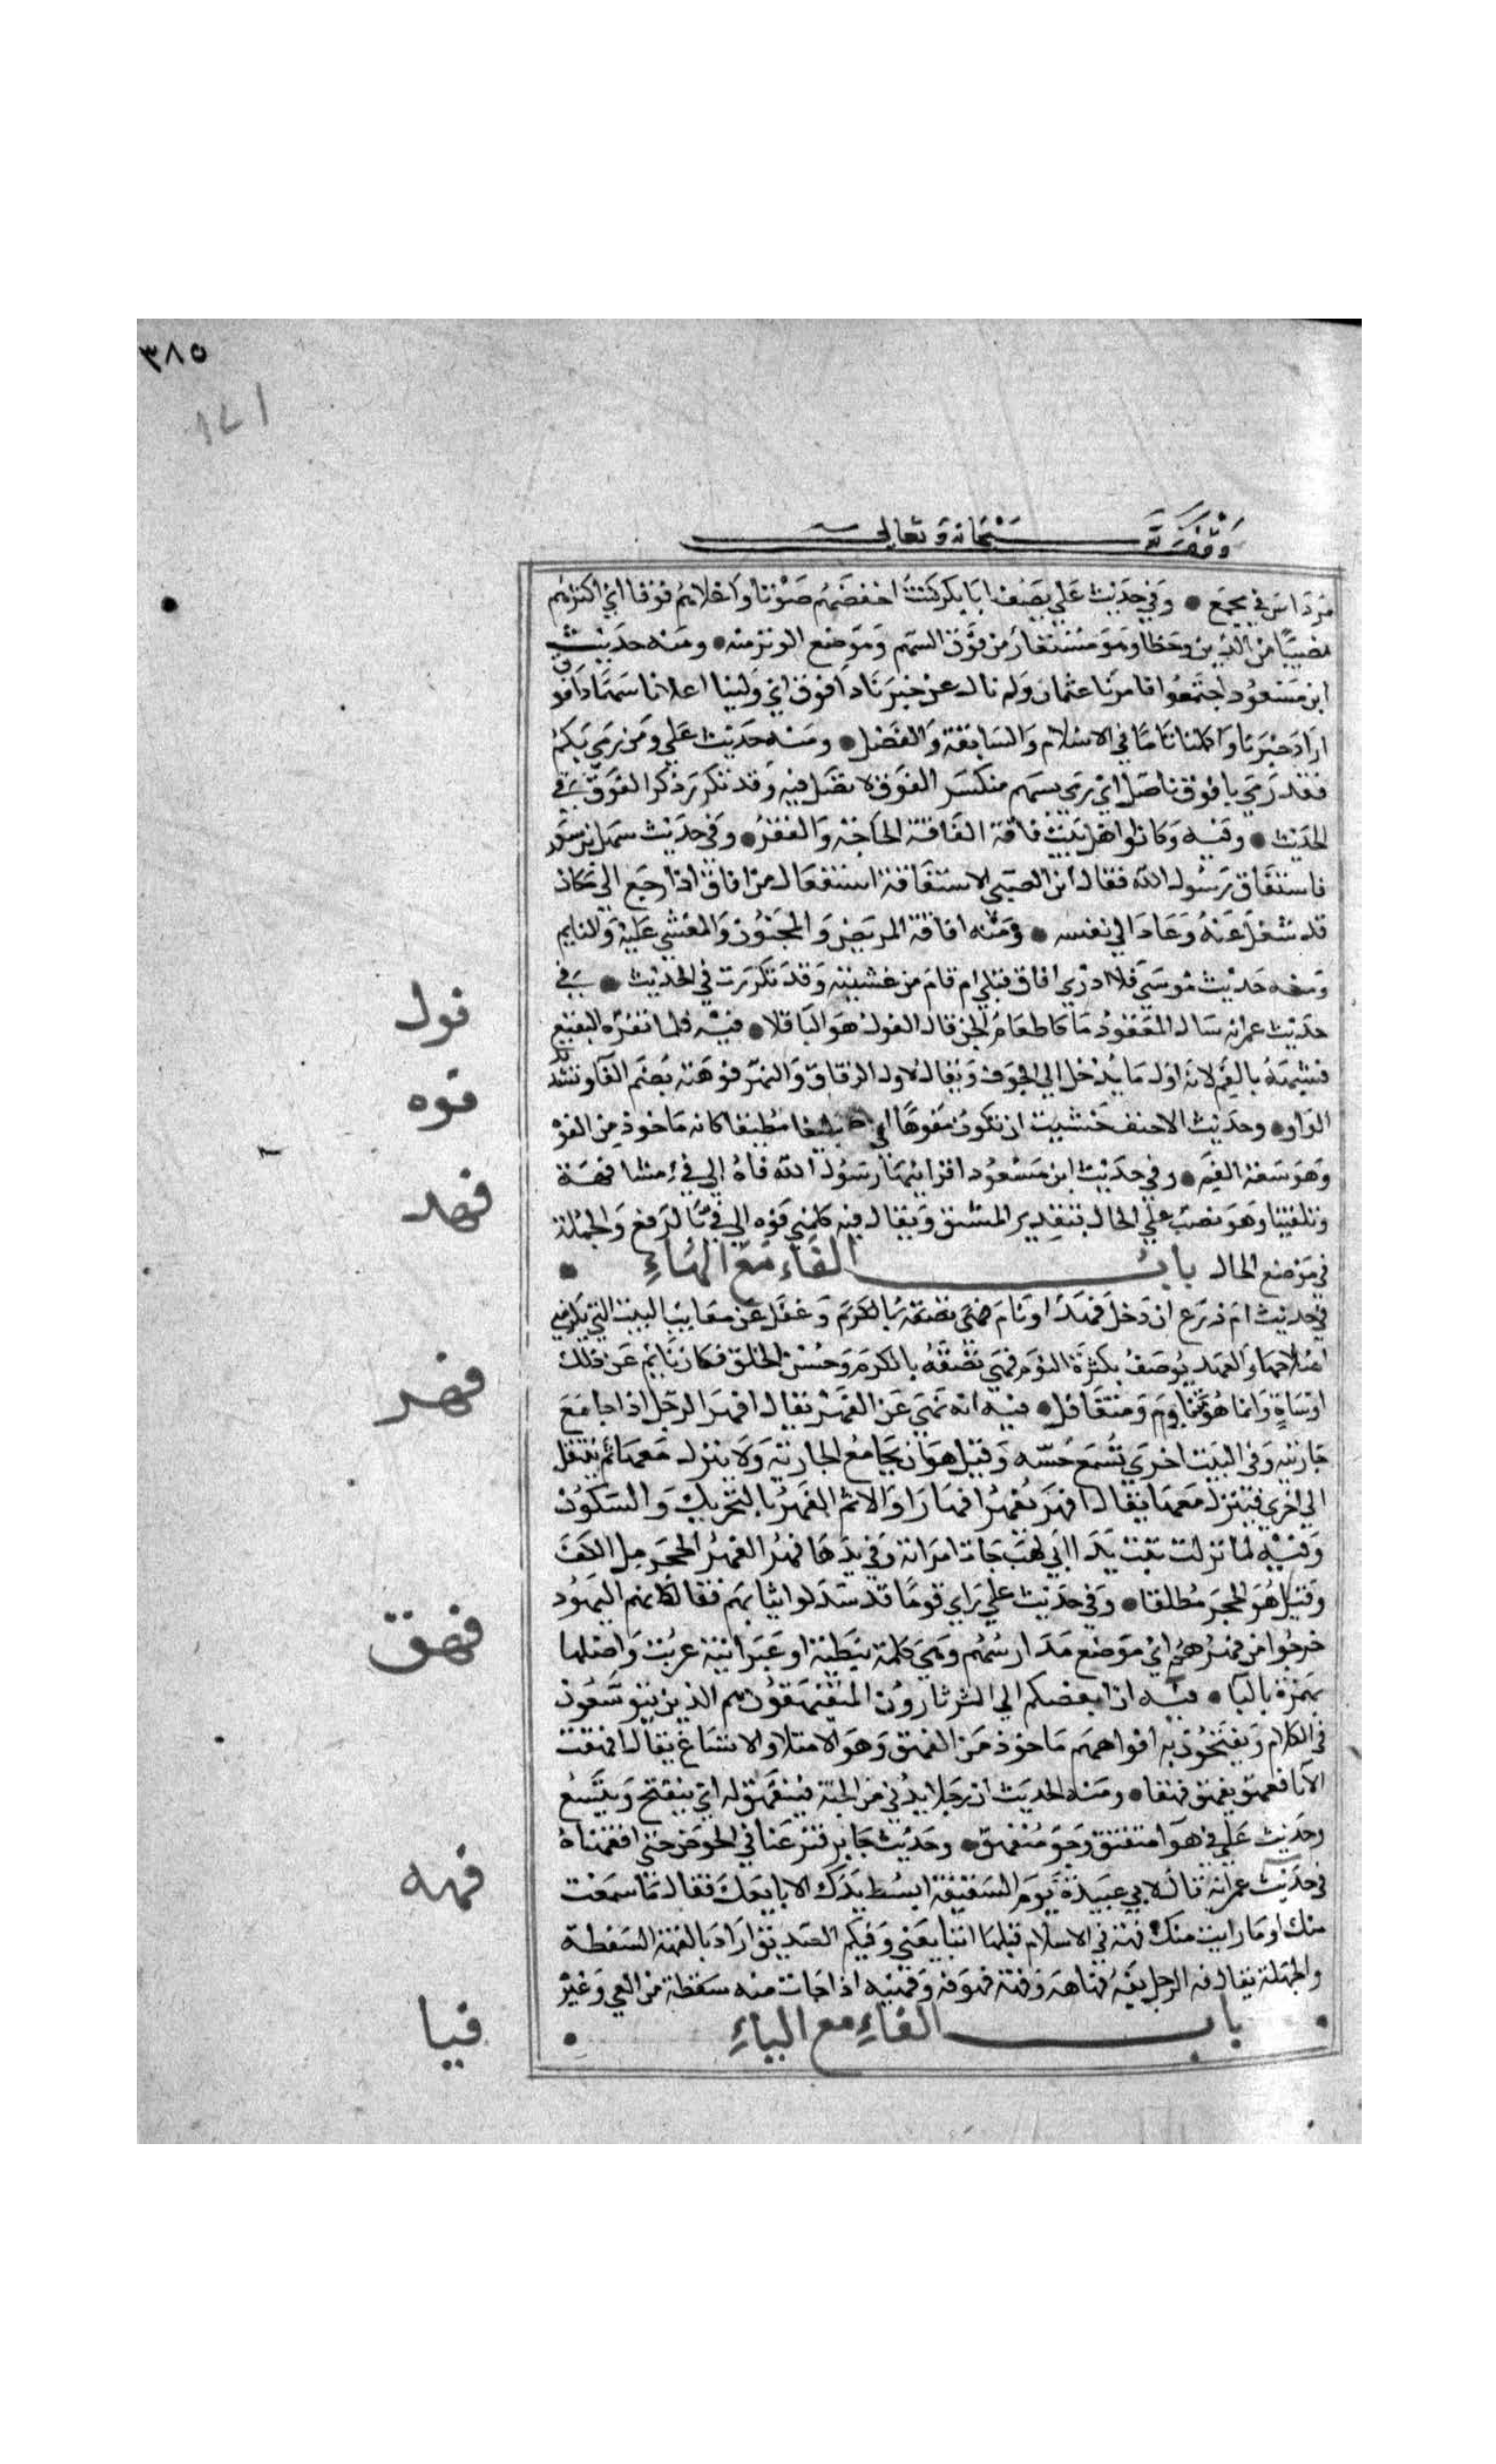 ٣٨٥
١٧١
وقف لله سبحانه وتعالى
مرداس في مجمع • وفي حديث علي يصف ابا بكر كنت اخفضهم صوتا واعلاهم فوقا اي اكثرهم
نصيبا من الدين وحظا وهو مستعار من فوق السهم وموضع الوتر منه • ومنه حديث
ابن مسعود اجتمعوا فامرنا عثمان ولم نال عن خيرنا ذا فوق اي ولينا اعلانا سهما ذا فوق
اراد خيرنا واكملنا تاما في الاسلام والسابقة والفضل • ومنه حديث علي ومن رمي بكم
فقد رمي بافوق ناصل اي رمي بسهم منكسر الفوق لا نصل فيه وقد تكرر ذكر الفوق في
الحديث • وفيه وكانوا اهل بيت فاقة الفاقة الحاجة والفقر • وفي حديث سهل بن سعد
فاستفاق رسول الله فقال اين الصبي الاستفاقة استفعال من افاق اذا رجع الي ما كان
قد شغل عنه وعاد الي نفسه • ومنه افاقة المريض والمجنون والمغشي عليه والنايم
ومنه حديث موسي فلا ادري افاق قبلي ام قام من غشيته وقد تكررت في الحديث • في
حديث عمر انه سال المفقود ما كا طعام الجن قال الفول هو الباقلا • فيه فلما تفوه البقيع
فشبهه بالفم لانه اول ما يدخل الي الجوف ويقال لاول الزقاق والنهر فوهته بضم الفا وتشديد
الواو • وحديث الاحنف خشيت ان تكون مفوها اي بليغا منطيقا كانه ماخوذ من الفوه
وهو سعة الفم • وفي حديث ابن مسعود اقرانيها رسول الله فاه الي في اي مشافهة
وتلقينا وهو نصب علي الحال بتقدير المشتق ويقال فيه كلمني فوه الي في بالرفع والجملة
في موضع الحال باب الفاء مع الهاء •
في حديث ام زرع ان دخل فهد اي نام فهي تصفه بالكرم وغفل عن معايب البيت التي يلزمني
اصلاحها والفهد يوصف بكثرة النوم فهي تصفه بالكرم وحسن الخلق فكانه نايم عن ذلك
او ساه وانما هو متناوم ومتغافل • فيه انه نهي عن الفهر يقال افهر الرجل اذا جامع
جاريته وفي البيت اخري تسمع حسه وقيل هو ان يجامع الجارية ولا ينزل معها ثم ينتقل
الي اخري فينزل معها يقال افهر يفهر افهارا والاسم الفهر بالتحريك والسكون
وفيه لما نزلت تبت يدا ابي لهب جات امراته وفي يدها فهر الفهر الحجر مل الكف
وقيل هو الحجر مطلقا • وفي حديث علي راي قوما قد سدلوا ثيابهم فقال كانهم اليهود
خرجوا من فهرهم اي موضع مدارسهم وهي كلمة نبطية او عبرانية عربت واصلها
بهرة بالبا • فيه ان ابغضكم الي الثرثارون المتفيهقون هم الذين يتوسعون
في الكلام ويفتحون به افواههم ماخوذ من الفهق وهو الامتلا والاتساع يقال افهقت
الانا ففهق يفهق فهقا • ومنه الحديث ان رجلا يدني من الجنة فينفهق له اي ينفتح ويتسع
وحديث علي في هوا منفتق وجو منفهق • وحديث جابر فنزعنا في الحوض حتي افهقناه
في حديث عمر انه قال لابي عبيدة يوم السقيفة ابسط يدك لابايعك فقال ما سمعت
منك او ما رايت منك فهة في الاسلام قبلها اتبايعني وفيكم الصديق اراد بالفهة السقطة
والجهلة يقال فه الرجل يفه فهاهة وفهة فهو فه وفهيه اذا جات منه سقطة من العي وغيره
• باب الفاء مع الياء •
فول
فوه
فهد
فهر
فهق
فهه
فيا